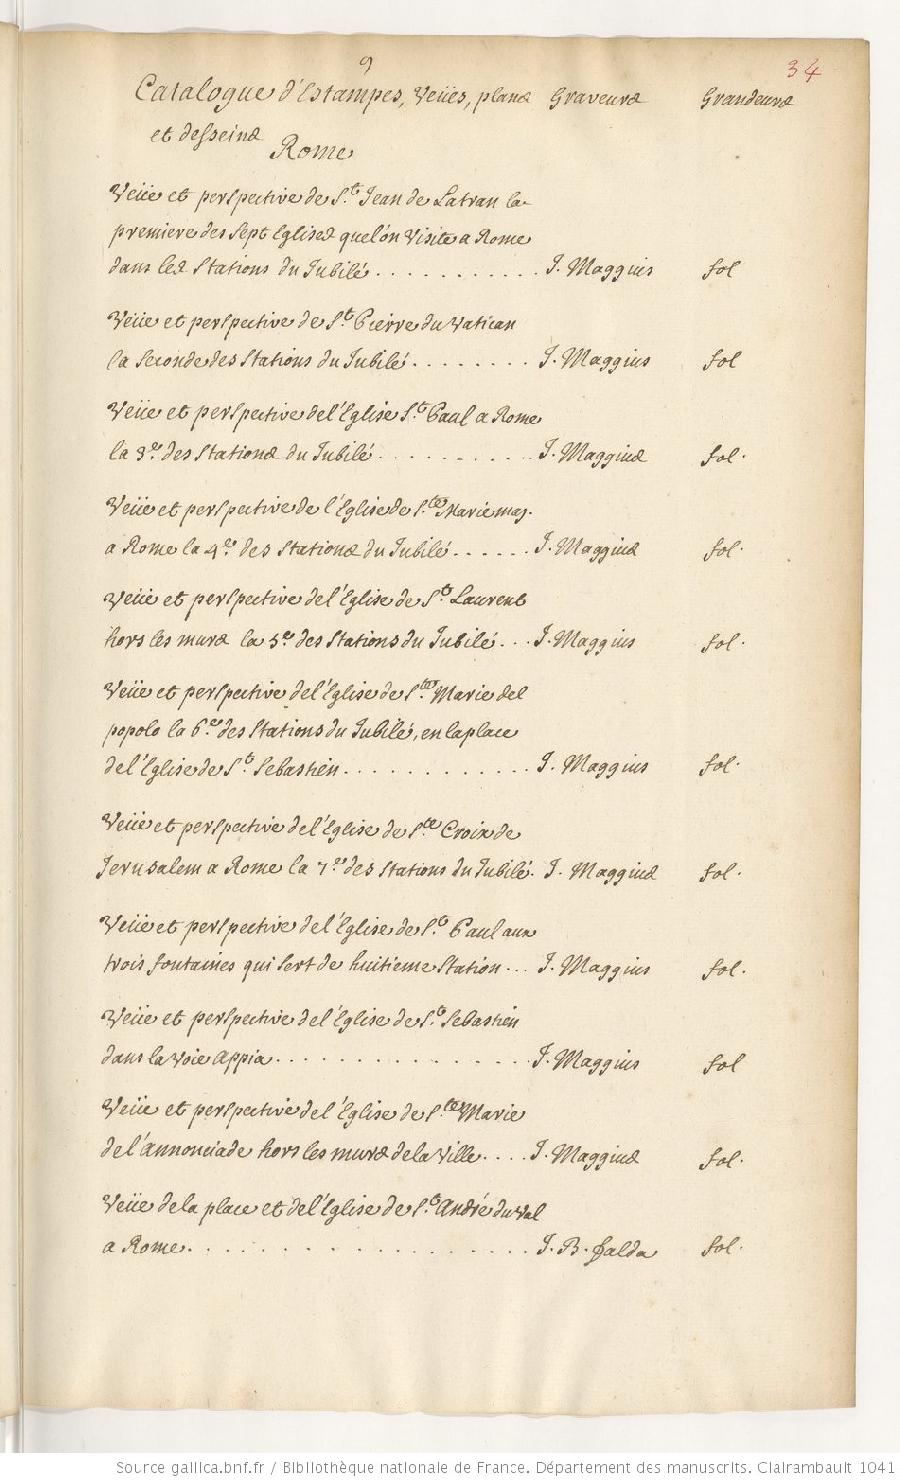 9
34
Catalogue d'Estampes, Veües, plans Graveurs Grandeurs
et desseins
Rome
Veüe et perspective de S.t Jean de Latran la
premiere des sept Eglises que l'on Visite a Rome
dans les Stations du Jubilé . . . . . . . . . . . J. Maggius fol
Veüe et perspective de S.t Pierre du Vatican
la Seconde des Stations du Jubilé . . . . . . . . J. Maggius fol
Veüe et perspective de l'Eglise S.t Paul a Rome
la 3.e des Stations du Jubilé . . . . . . . . . . J. Maggius fol.
Veüe et perspective de l'Eglise de S.te Marie maj.
a Rome la 4.e des Stations du Jubilé . . . . . . J. Maggius fol.
Veüe et perspective de l'Eglise de S.t Laurent
hors les murs la 5.e des Stations du Jubilé . . . J. Maggius fol.
Veüe et perspective de l'Eglise de S.te Marie del
popolo la 6.e des Stations du Jubilé, en la place
de l'Eglise de S.t Sebastien . . . . . . . . . . . . J. Maggius fol.
Veüe et perspective de l'Eglise de S.te Croix de
Jerusalem a Rome la 7.e des Stations du Jubilé. J. Maggius fol.
Veüe et perspective de l'Eglise de S.t Paul aux
trois fontaines qui sert de huitieme Station . . . J. Maggius fol.
Veüe et perspective de l'Eglise de S.t Sebastien
dans la Voie Appia . . . . . . . . . . . . . . . . J. Maggius fol
Veüe et perspective de l'Eglise de S.te Marie
de l'annonciade hors les murs de la Ville . . . . J. Maggius fol.
Veüe de la place et de l'Eglise de S.t André du Val
a Rome . . . . . . . . . . . . . . . . . . J. B. Falda fol.
Source gallica.bnf.fr / Bibliothèque nationale de France. Département des manuscrits. Clairambault 1041